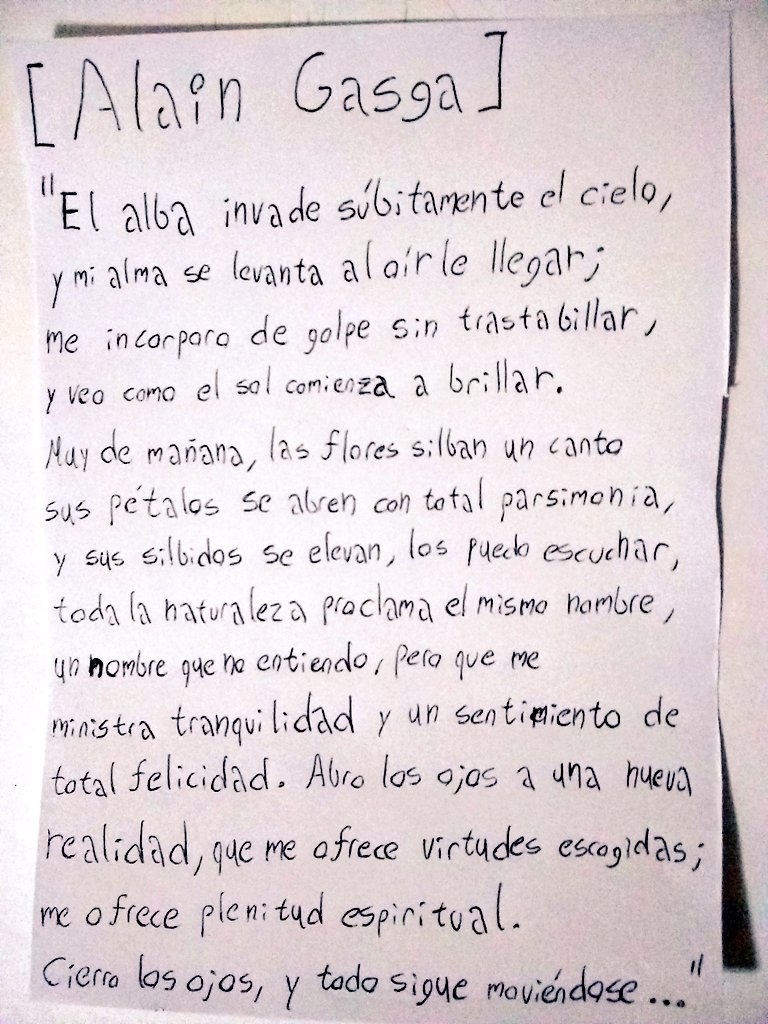 [Alain Gasga]
"El alba invade súbitamente el cielo,
y mi alma se levanta al oírle llegar;
me incorporo de golpe sin trastabillar,
y veo como el sol comienza a brillar.
Muy de mañana, las flores silban un canto
sus pétalos se abren con total parsimonia,
y sus silbidos se elevan, los puedo escuchar,
toda la naturaleza proclama el mismo nombre,
un nombre que no entiendo, pero que me
ministra tranquilidad y un sentimiento de
total felicidad. Abro los ojos a una nueva
realidad, que me ofrece virtudes escogidas;
me ofrece plenitud espiritual.
Cierro los ojos, y todo sigue moviéndose..."